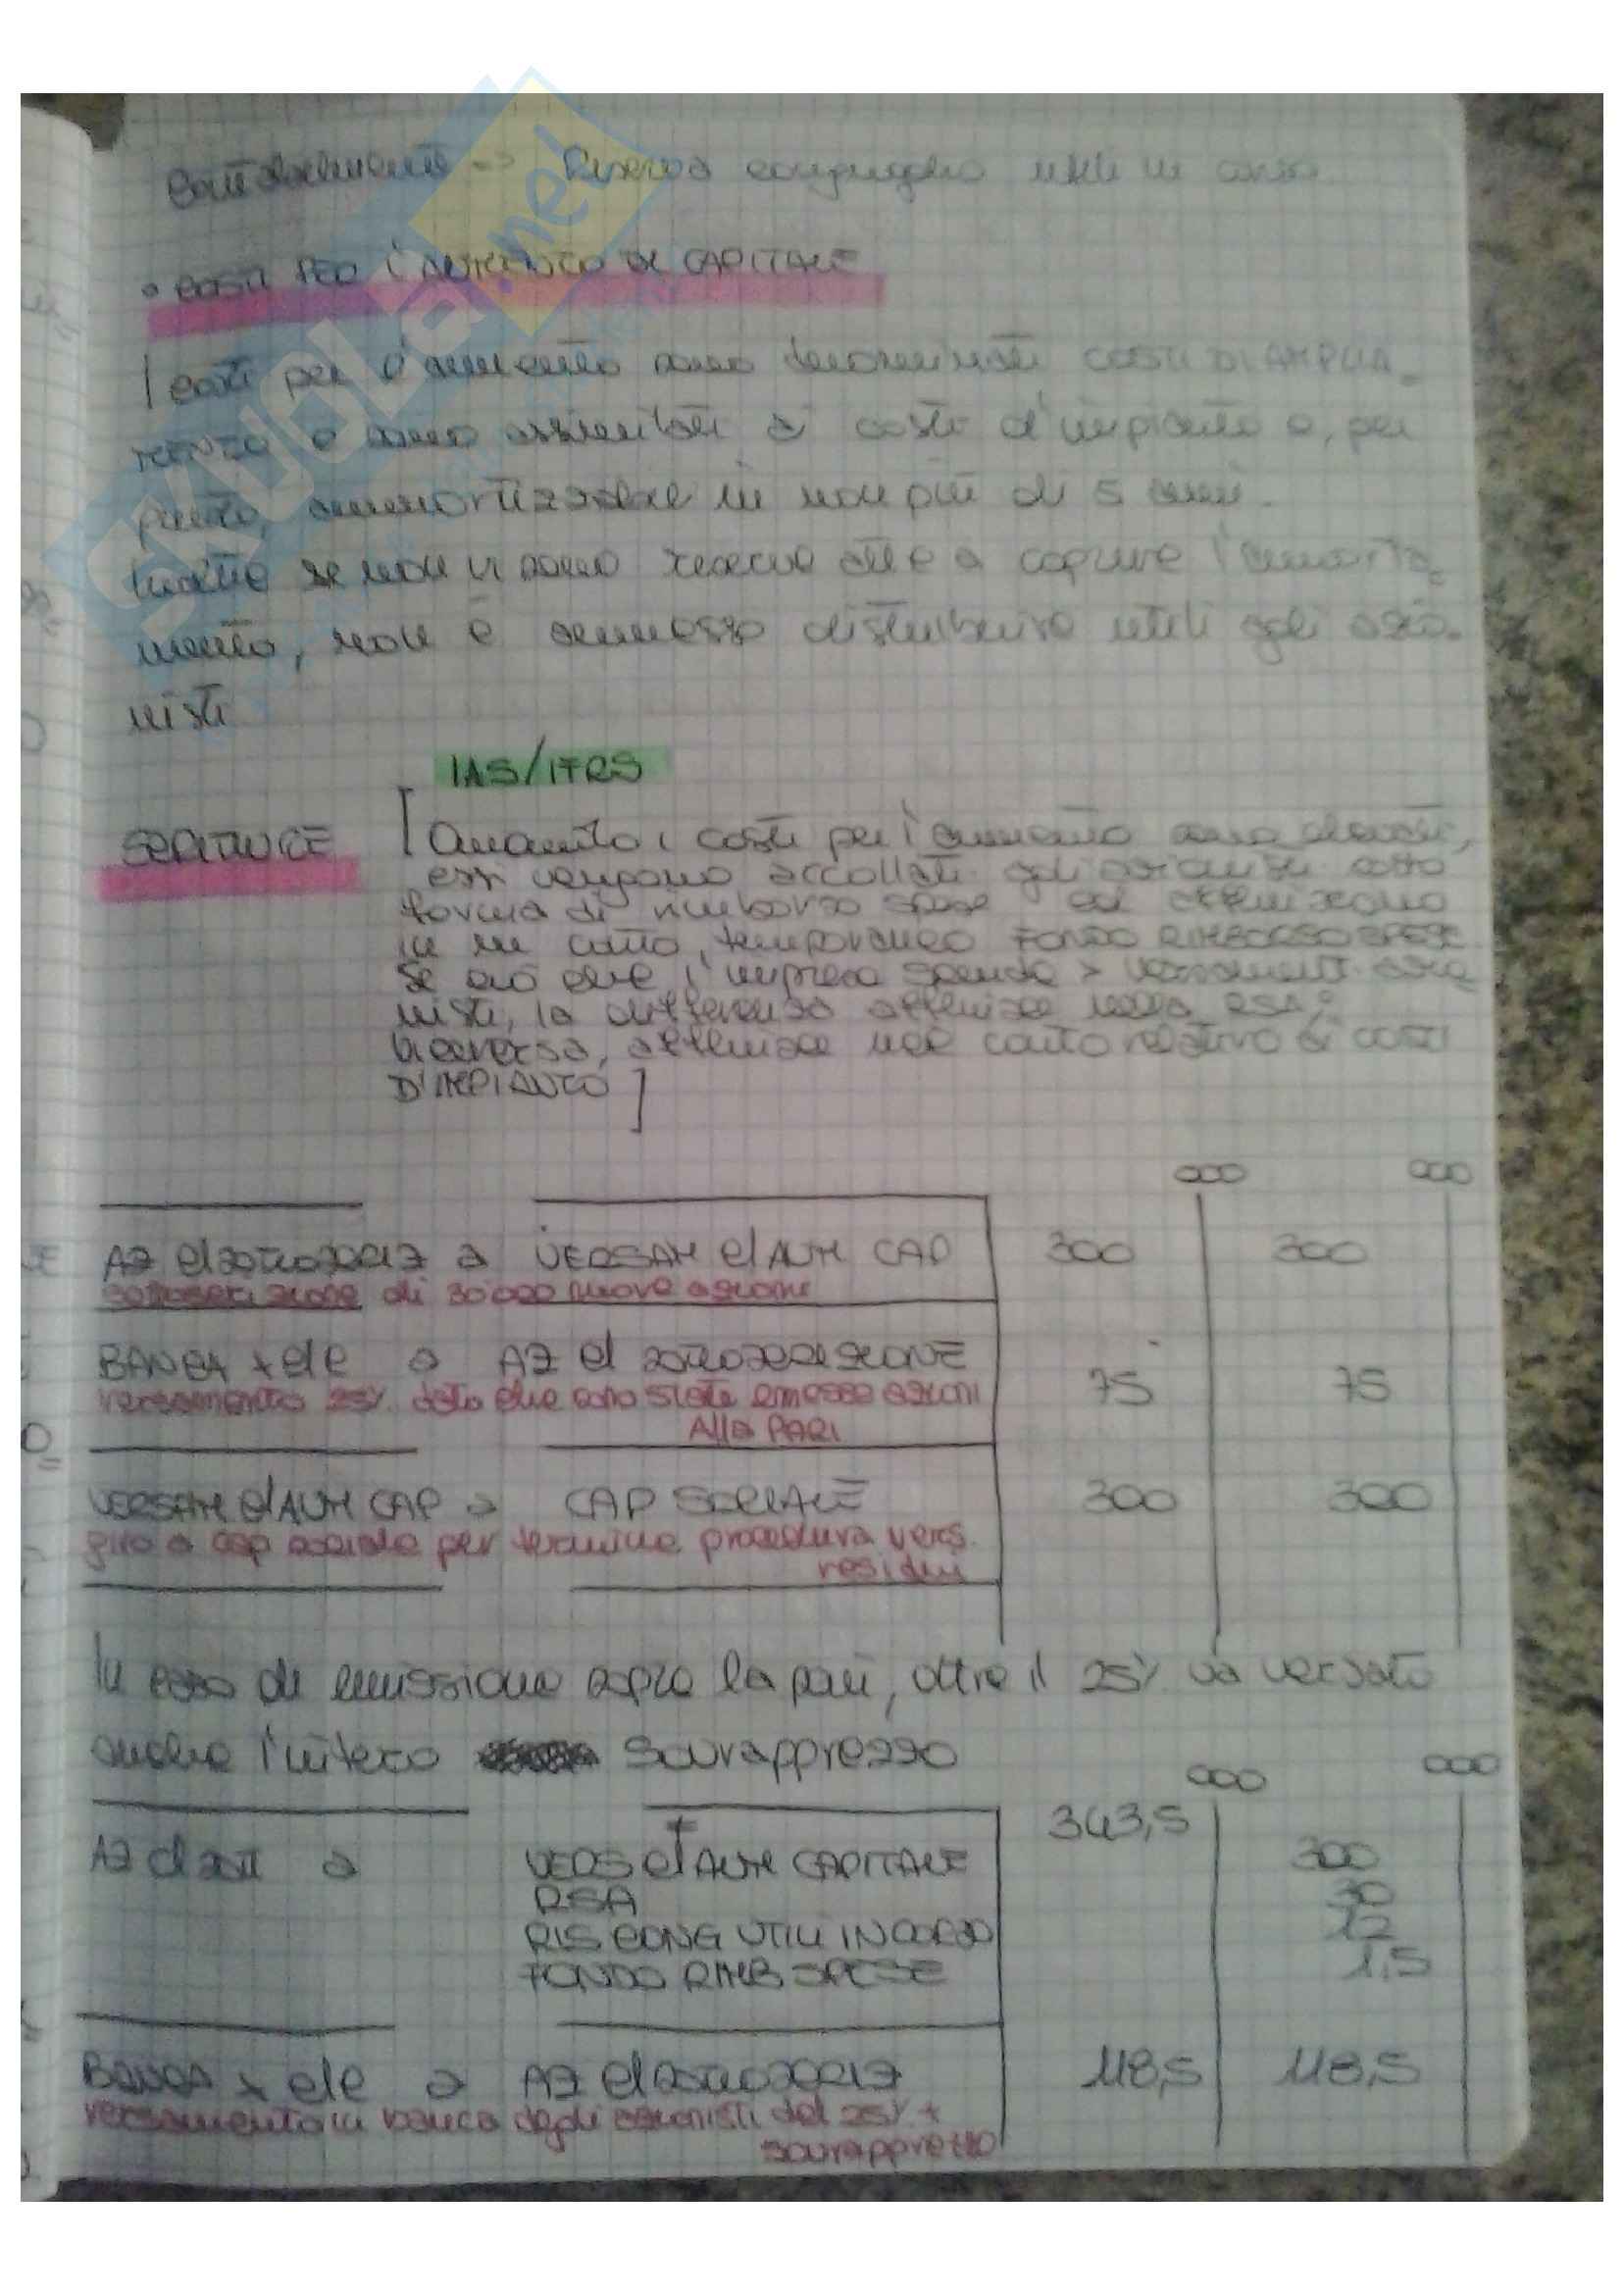 Contabilmente => Riserva conguaglio utili in corso.
• COSTI PER L'AUMENTO DI CAPITALE
I costi per l'aumento sono denominati COSTI DI AMPLIA-
MENTO e sono assimilati ai costi d'impianto e, per
questo, ammortizzabili in non più di 5 anni.
Inoltre se non vi sono riserve atte a coprire l'ammorta-
mento, non è ammesso distribuire utili agli azio-
nisti
IAS/IFRS
SCRITTURE
[Quando i costi per l'aumento sono elevati,
essi vengono accollati agli azionisti sotto
forma di rimborso spese ed affluiscono
in un conto temporaneo FONDO RIMBORSO SPESE
Se ciò che l'impresa spende > versamenti azio
nisti, la differenza affluisce nella RSA;
Viceversa, affluisce nel conto relativo ai costi
D'IMPIANTO]
000 000
AZ c/sottoscriz a VERSAM c/AUM CAP 300 300
sottoscrizione di 30'000 nuove azioni
BANCA X c/c a AZ c/ sottoscrizione 75 75
versamento 25% dato che sono state emesse azioni
Alla PARI
VERSAM c/AUM CAP a CAP SOCIALE 300 300
giro a cap sociale per termine procedura vers.
residui
In caso di emissione sopra la pari, oltre il 25% va versato
anche l'intero sovrapprezzo
000 000
AZ c/sott a 343,5
VERS c/AUM CAPITALE 300
RSA 30
RIS CONG UTILI IN CORSO 12
FONDO RIMB SPESE 1,5
BANCA X c/c a AZ c/sottoscriz 118,5 118,5
versamento in banca degli azionisti del 25% +
sovrapprezzo
SKUOLA.net